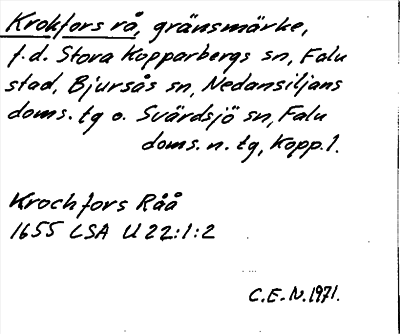 Krokfors rå, gränsmärke,
f.d. Stora Kopparbergs sn, Falu
stad, Bjursås sn, Nedansiljans
doms. tg o. Svärdsjö sn, Falu
doms. n. tg, Kopp. l.
Krochfors Råå
1655 LSA U 22:1:2
C.E.N. 1971.